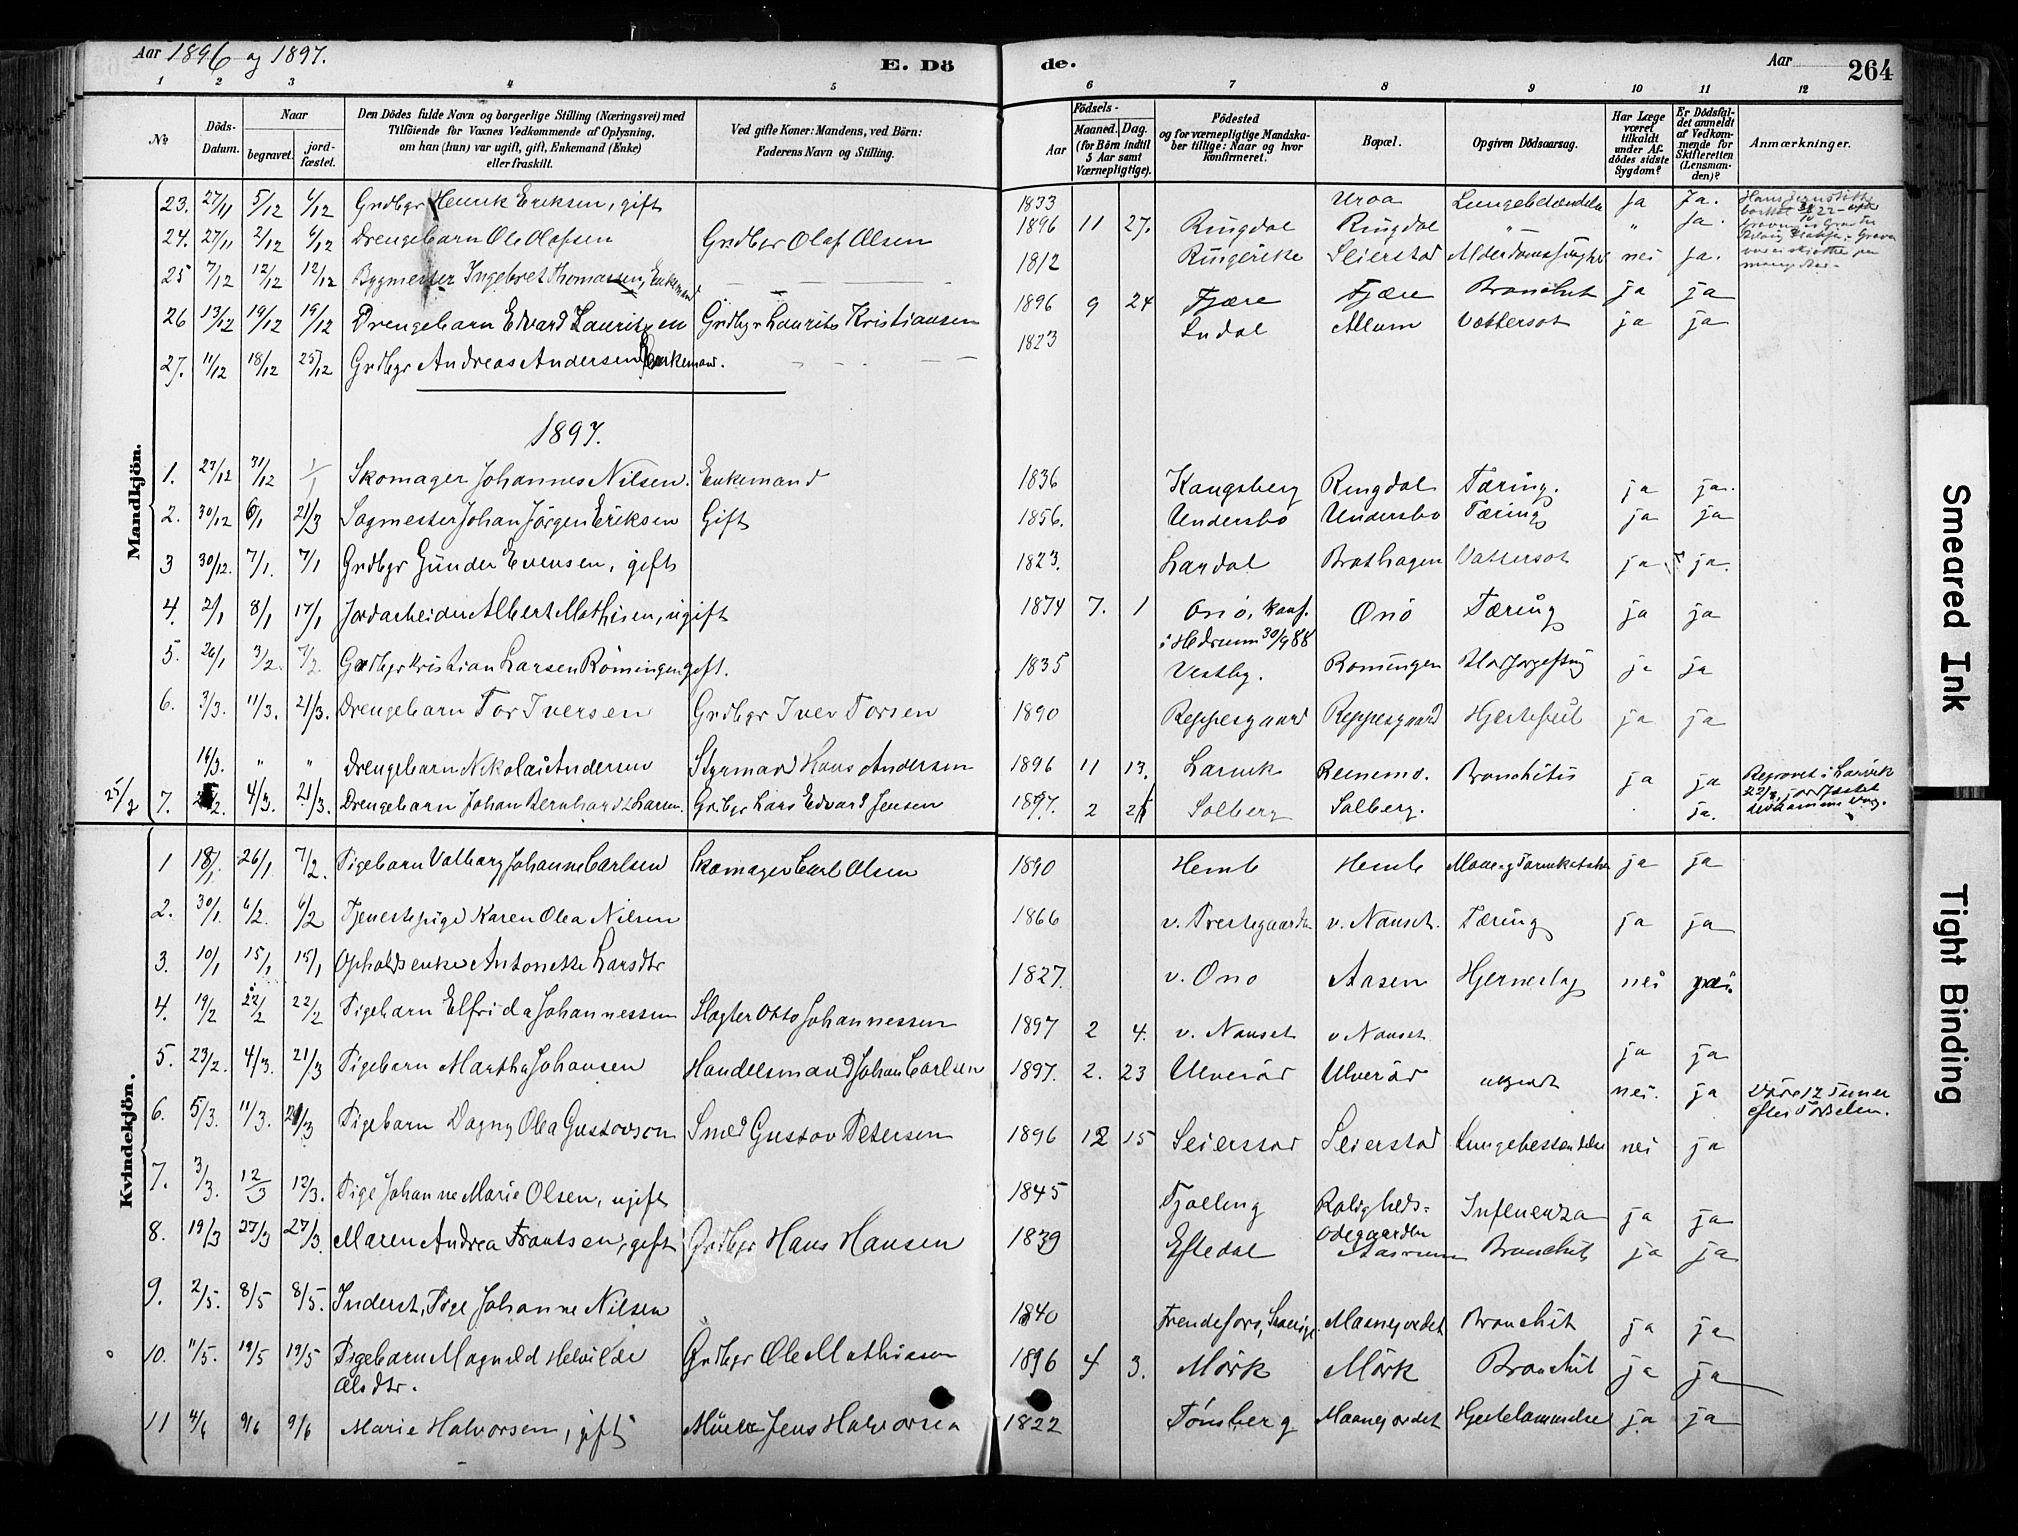 Aar 1896 og 1897.
E. Dö
de.
Aar
264
1 2 3 4 5 6 7 8 9 10 11 12
No
Döds-Datum.
Naar
begravet.
jord-fæstet.
Den Dödes fulde Navn og borgerlige Stilling (Næringsvei) med
Tilföiende for Voxnes Vedkommende af Oplysning,
om han (hun) var ugift, gift, Enkemand (Enke)
eller fraskilt.
Ved gifte Koner: Mandens, ved Börn:
Faderens Navn og Stilling.
Födsels-
Aar
Maaned. Dag.
(for Börn indtil
5 Aar samt
Værnepligtige).
Födested
og for værnepligtige Mandska-
ber tillige: Naar og hvor
konfirmeret.
Bopæl.
Opgiven Dödsaarsag.
Har Læge
været
tilkaldt
under Af-
dödes sidste
Sygdom?
Er Dödsfal-
det anmeldt
af Vedkom-
mende for
Skifteretten
(Lensman-
den)?
Anmærkninger.
Mandkjön.
23. 27/11 5/12 6/12 Grdbgr Henrik Eriksen, gift 1833 Uroa Lungebetændelse ja Ja.
24. 27/11 2/12 6/12 Drengebarn Ole Olafsen Grdbgr Olaf Olsen 1896 11 27. Ringdal Ringdal " " Ja.
25 7/12 12/12 12/12 Bygmester Ingebret Thomassen, Enkemand 1812 Ringerike Seierstad nei Ja.
26 13/12 19/12 19/12 Drengebarn Edvard Lauritzen Grdbgr Laurits Kristiansen 1896 9 24 Fjære Fjære Bronchit ja ja
27. 11/12 18/12 25/12 Grdbgr Andreas Andersen Enkemand. 1823 Allum Vattersot ja ja
1897.
1. 27/12 31/12 1/1 Skomager Johannes Nilsen. Enkemand 1836 Kongsberg Ringdal Tæring. ja ja.
2. 30/12 6/1 21/3 Sagmester Johan Jörgen Eriksen Gift 1856. Undersbo Undersbo Tæring ja ja
3 30/12. 7/1. 7/1 Grdbgr Günder Evensen, gift 1823. Lardal Brathagen Vattersot ja ja.
4. 2/1 8/1 17/1 Jordarbeider Albert Mathisen, ugift 1874 7. 1 Onö, konf. Onö Tæring ja ja
i Hedrum 30/9 88
5. 26/1 3/2. 7/2. Grdbgr Kristian Larsen Römingen gift. 1835 Vestby. Romingen ja ja
6. 3/3. 11/3. 21/3. Drengebarn Tor Iversen Grdbgr Iver Torsen 1890 Reppesgaard Reppesgaard Hjertefeil ja ja
14/3. " " Drengebarn Nikolai Andersen Styrmand Hans Andersen 1896 11 13. Larvik Reinemo. Bronchitis ja ja Begravet i Larvik
25/2 7. 4/3. 21/3. Drengebarn Johan Bernhard Larsen. Grdbgr Lars Edvard Jensen 1897. 2 Solberg Solberg. ja.
Kvindekjön.
1 18/1. 26/1. 7/2. Pigebarn Valborg Johanne Carlsen Skomager Carl Olsen 1890 Hemb Hemb ja ja
2. 30/1. 6/2. 6/2 Tjenestepige Karen Olea Nilsen 1866 v. Prestegaarden v. Nauset. Tæring ja ja
3. 10/1 15/1 15/1 Opholdsenke Antonette Larsdtr 1827. v. Ono Aasen Hjerneslag nei
4. 19/2 22/2 22/2 Pigebarn Elfrida Johannessen Slagter Otto Johannessen 1897 2 4. v. Nauset v Nauset ja ja
5. 23/2. 4/3. 21/3 Pigebarn Martha Johansen Handelsmand Johan Carlsen 1897. 2. 23 Ulveröd Ulveröd nei. ja Våre 12 Timer
efter Födselen.
6. 5/3. 11/3. 21/3 Pigebarn Dagny Olea Gustavson Smed Gustav Petersen 1896 12 15 Seierstad Seierstad Lungebetændelse nei ja
7. 3/3. 12/3 12/3. Pige Johanne Marie Olsen, ugift 1845 Tjølling Roligheds- Influenza ja ja
Ödegaarden
8. 19/3 27/3 27/3. Maren Andrea Frantsen, gift Grdbgr Hans Hansen 1839 Eftedal Aasrum Bronchit ja ja
9. 2/5. 8/5 8/5. Inderst, Pige Johanne Nilsen 1840 Maanejordet Bronchit ja ja
10. 11/5. 19/5 19/5 Pigebarn Magnild Helvilde Grdbgr Ole Mathisen 1896 4 3. Mörk Mörk Bronchit ja ja
Olsdtr.
11 4/6 9/6 9/6 Marie Halvorsen, gift Jens Halvorsen 1822 Tönsberg Maanejordet Hjertelammelse ja ja
Smeared Ink
Tight Binding